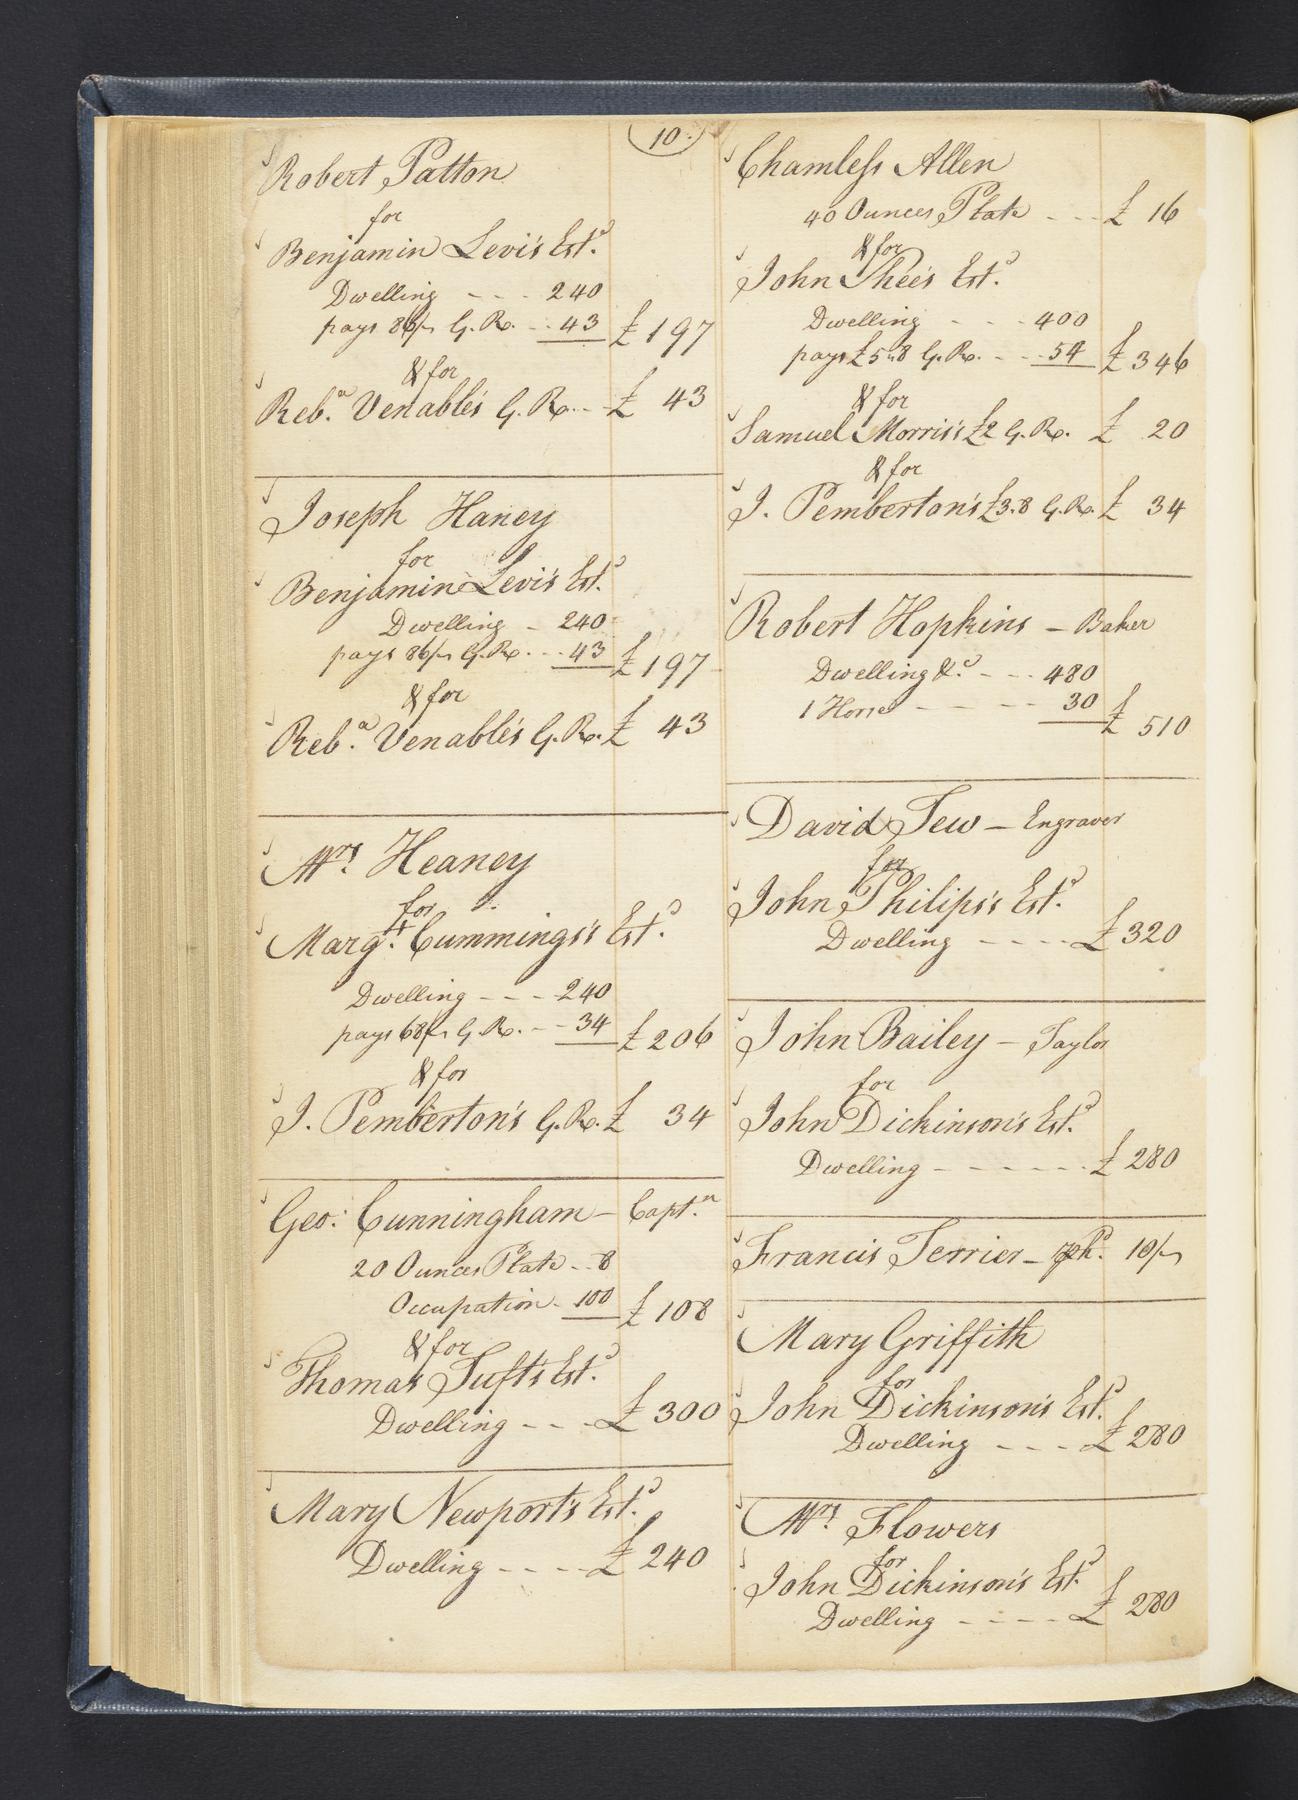 10.
Robert Patton
for
Benjamin Levi's Est.e
Dwelling - - - 240
pays 86/- G. R. - - 43 £ 197
& for
Reb.a Venable's G. R. - - £ 43
Joseph Haney
for
Benjamin Levi's Est.e
Dwelling - 240
pays 86/- G. R. - - 43 £ 197
& for
Reb.a Venable's G. R. £ 43
Mrs. Heaney
for
Marg.t Cummings's Est.e
Dwelling - - - 240
pays 68/- G. R. - - 34 £ 206
& for
J. Pemberton's G. R. £ 34
Geo: Cunningham - Capt.n
20 Ounces Plate - - 8
Occupation - 100 £ 108
& for
Thomas Tuft's Est.e
Dwelling - - - £ 300
Mary Newport's Est.e
Dwelling - - - - £ 240
Chamless Allen
40 Ounces Plate - - - £ 16
& for
John Shee's Est.e
Dwelling - - - 400
pays £5.8 G. R. - - - 54 £ 346
& for
Samuel Morris's £2 G. R. £ 20
& for
J. Pemberton's £3.8 G. R. £ 34
Robert Hopkins - Baker
Dwelling &.c - - - 480
1 Horse - - - - 30 £ 510
David Tew - Engraver
for
John Philips's Est.e
Dwelling - - - - £ 320
John Bailey - Taylor
for
John Dickinson's Est.e
Dwelling - - - - - - £ 280
Francis Terrier - ph. 10/-
Mary Griffith
for
John Dickinson's Est.e
Dwelling - - - £ 280
Mrs. Flowers
for
John Dickinson's Est.e
Dwelling - - - - £ 280